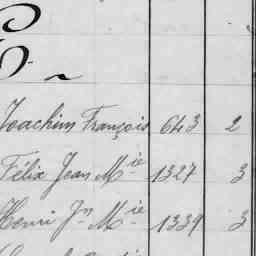 Joachim François 643 2
Félix Jean Mie 1327 3
Henri Jn Mie 1339 3